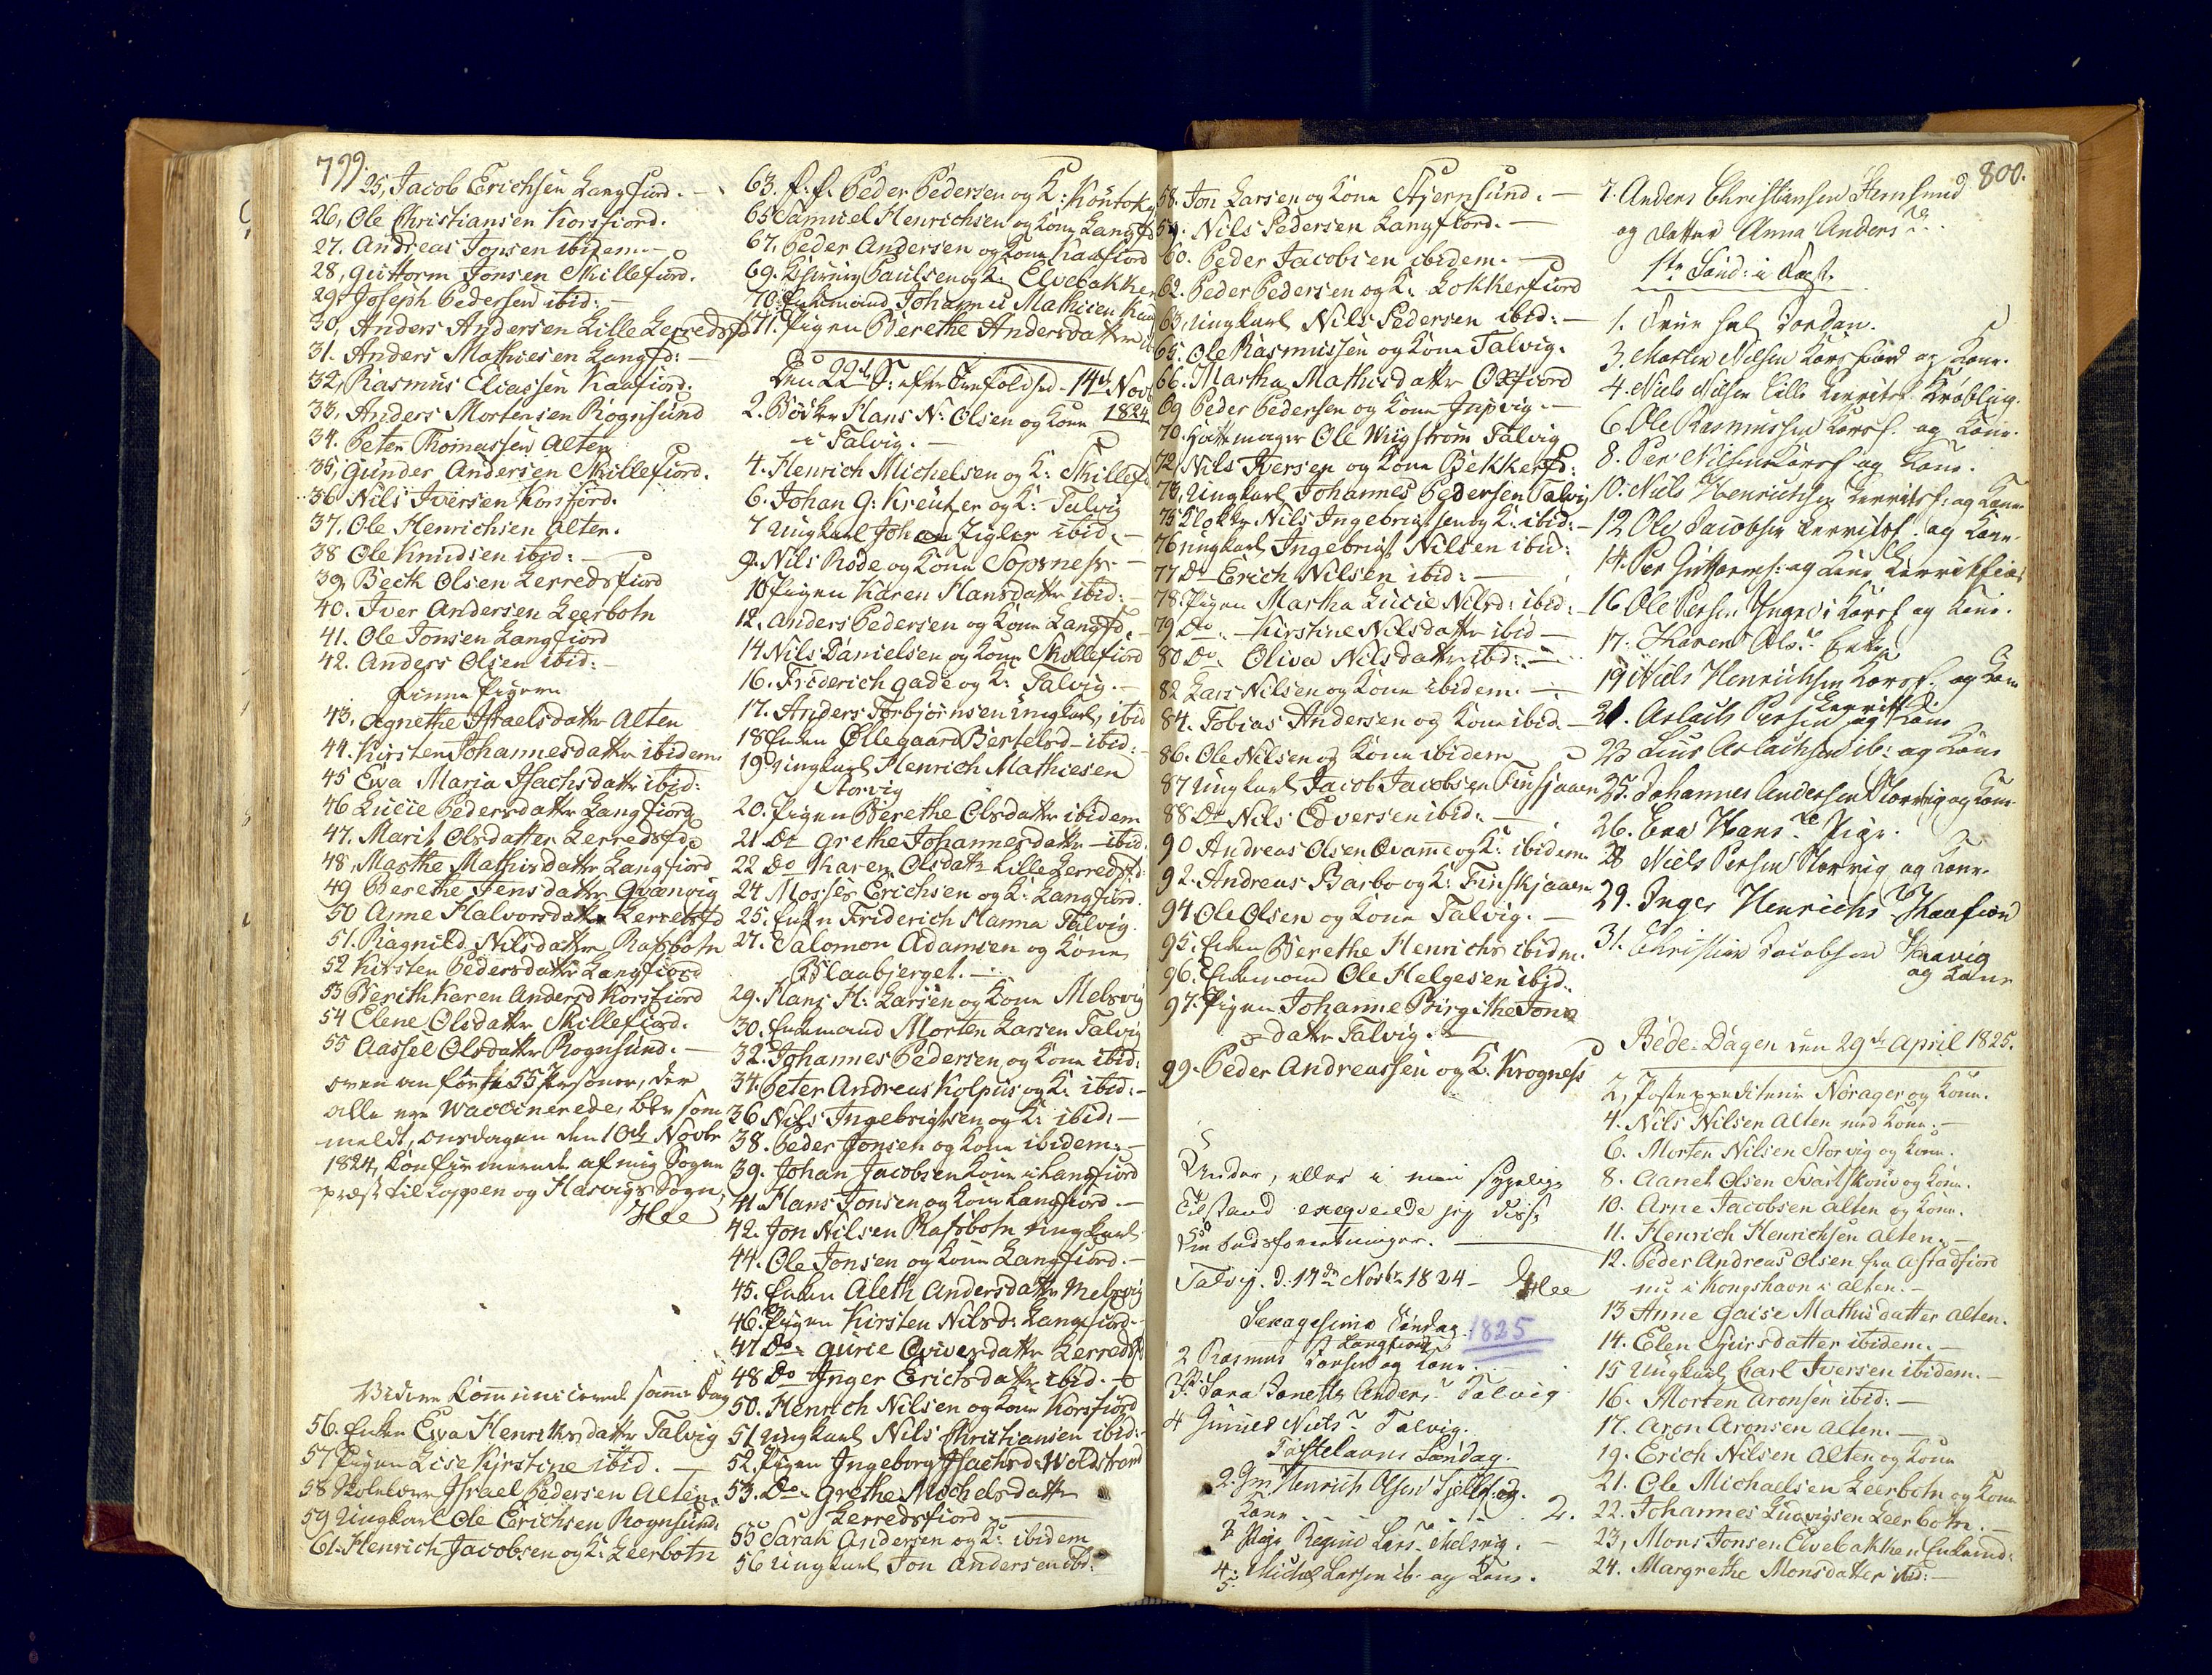 799.
25, Jacob Erichsen Langfiord. –
26, Ole Christiansen Korsfiord.
27. Andreas Jonsen ibidem. –
28, Guttorm Jonsen Skillefiord.
29, Joseph Pedersen ibid: –
30, Anders Andersen Lille Lerredsfd
31. Anders Mathiesen Langfd: –
32, Rasmus Eliassen Kaafiord.
33, Anders Mortensen Rognsund
34. Peter Thomassen Alten
35, Gunder Andersen Skillefiord.
36 Nils Iversen Korsfiord.
37. Ole Henrichsen Alten.
38 Ole Knudsen ibid: –
39, Beck Olsen Lerredsfiord
40. Iver Andersen Leerbotn
41. Ole Jonsen Langfiord
42. Anders Olsen ibid: –
Pigerne
43, Agnethe Israelsdatter Alten
44. Kirsten Johannesdatter ibidem
45 Ewa Maria Isachsdatter ibid:
46 Lucie Pedersdatter Langfiord
47. Marit Olsdatter Lerredsfd
48, Marthe Mathisdatter Langfiord
49 Berethe Jensdatter Qvænvig
50 Anne Halvorsdatter Lerredsfd
51. Ragnild Nilsdatter Rafsbotn
52 Kirsten Pedersdatter Langfiord
53 Berith Karen Andersd Korsfiord
54 Elene Olsdatter Skillefiord.
55 Aassel Olsdatter Rognsund. –
oven anførte 55 Personer, der
alle ere Waccinerede, blev som
meldt, onsdagen den 10de Novbr
1824, Confirmerede af mig Sogne
præst til Loppen og Hasvigs Sogn,
Hee
Videre Communicerede samme Dag
56. Enken Ewa Henriksdatter Talvig
57 Pigen Lise Kirstine ibid. –
58 Skolelærer Israel Pedersen Alten.
59 Ungkarl Ole Erichsen Rognsund.
61. Henrich Jacobsen og K: Leerbotn
63. Peder Pedersen og K: Koutok
65 Samuel Henrichsen og Kone Langfd
67. Peder Andersen og Kone Kaafiord
69. Paulsen og K: Elvebakken
70. Enkemand Johannes Mathisen
71. Pigen Berethe Andersdatter
Den 22de S: efter Trefoldhed – 14de Novb
1824
2. Hans N: Olsen og Kone
i Talvig. –
4. Henrich Michelsen og K: Skillefd
6. Johan G: Kreutzer og K: Talvig
7 Ungkarl Johan Zigler ibid. –
9. Nils Rode og Kone Sopsnes. –
10 Pigen Karen Hansdatter ibid: –
12. Anders Pedersen og Kone Langfd. –
14 Nils Danielsen og Kone Skillefiord
16. Friderich Gade og K: Talvig. –
17. Anders Torbjørnsen Ungkarl, ibid
18 Enken Øllegaard Bertelsd – ibid:
19 Ungkarl Henrich Mathiesen
Storvig
20. Pigen Berethe Olsdatter ibidem
21. Do Grethe Johannesdatter – ibid.
22 Do Karen Olsdatter Lille Lerredsfd
24 Moses Erichsen og K: Langfiord.
25. Enken Friderich Hanna Talvig.
27. Salomon Adamsen og Kone
Blaabjerget. –
29. Hans H: Larsen og Kone Melsvig
30. Enkemand Morten Larsen Talvig
32. Johannes Pedersen og Kone ibid:
34. Peter Andreas Kolpus og K: ibid: –
36 Nils Ingebrigtsen og K: ibid: –
38. Peder Jonsen og Kone ibidem. –
39. Johan Jacobsen Kone i Langfiord
41. Hans Jonsen og Kone Langfiord –
42. Jon Nilsen Rafsbotn Ungkarl
44. Ole Jonsen og Kone Langfiord. –
45. Enken Aleth Andersdatter Melsvig
46. Pigen Kirsten Nilsd: Langfiord. –
47 Do Gurie Qviversdatter Lerredsfd
48 Do Inger Erichsdatter ibid. –
50. Henrich Nilsen og Kone Korsfiord
51 Ungkarl Nils Christiansen ibid: –
52. Pigen Ingeborg Isachsd: Woldstrand
53. Do Grethe Michelsdatter
Lerredsfiord. –
55 Sarah Andersen og K: ibidem
56 Ungkarl Jon Andersen ibid:
800.
58. Jon Larsen og Kone Stjernsund. –
59. Nils Pedersen Langfiord. –
60. Peder Jacobsen ibidem. –
62. Peder Pedersen og K: Lokkerfiord
63, Ungkarl Nils Pedersen ibid: –
65. Ole Rasmussen og Kone Talvig.
66. Martha Mathisdatter Oxfiord
69 Peder Pedersen og Kone Jupvig. –
70. Hattemager Ole Wiigstrøm Talvig
72 Nils Iversen og Kone Bekkerfd:
73, Ungkarl Johannes Pedersen Talvig
75 Klokker Nils Ingebrigtsen og K: ibid: –
76 Ungkarl Ingebrigt Nilsen ibid:
77 Do Erich Nilsen ibid: –
78. Pigen Martha Lucie Nilsd: ibid: –
79 Do. Kirstine Nilsdatter ibid –
80 Do. Oliva Nilsdatter ibid: –
82 Lars Nilsen og Kone ibidem. –
84. Tobias Andersen og Kone ibid. –
86. Ole Nilsen og Kone ibidem
87 Ungkarl Jacob Jacobsen Finskjaaren
88 Do Nils Edversen ibid: –
90 Andreas Olsen Qvamme og K: ibidem.
92. Andreas Barbo og K: Finskjaaren
94 Ole Olsen og Kone Talvig. –
95. Enken Berethe Henrichs ibidm.
96. Enkemand Ole Helgesen ibid.
97. Pigen Johanne Birgithe Jons
datter Talvig. –
99. Peder Andreassen og K. Krogness
Under, eller i min sygelige
Tilstand exeqverede jeg disse
Embedsforretninger. –
Talvig. d: 17de Novbr 1824 – Hee
Sexagesima Søndag. 1825
Langfiord
2 Rasmus Larsen og Kone.
3. Sara Janetta Anders Talvig
4 Gunild Niels Talvig.
Fastelavns Søndag.
2. Henrich Olsen og
Kone – – – – 2.
3 Pige Regine Lars. Melsvig. –
4. Michel Larsen ib. og Kone.
5.
7. Anders Christiansen Stiernsund
og Datter Anna Anders
1te Sønd: i Fast.
1. Jordan.
3. Morten Nilsen Korsfiord og Kone.
4. Niels Nilsen Lille Krøbling.
6. Ole Rasmussen Korsf. og Kone.
8. Per Nilsen Korsf og Kone.
10. Niels Henrichsen Lerritsf: og Kone
12 Ole Jacobsen Lerritsf. og Kone.
14. Per Guttorms: og Kone Lerritsfior
16 Ole Persen Korsf og Kone.
17. Karen Ols Enke
19 Niels Henrichsen Korsf. og Kone
21. Aslach Persen Lerritsf og Kone
23 Aslachsen ib: og Kone
25. Johannes Andersen Storvig og Kone
26. Ewa Hans Pige.
28 Niels Persen Storvig og Kone
29. Inger Henrichs Kaafiord
31. Christian Jacobsen
og Kone
Bede-Dagen den 29de April 1825.
2, Postexpediteur Norager og Kone.
4. Nils Nilsen Alten med Kone. –
6. Morten Nilsen Storvig og Kone.
8. Aanet Olsen Svartskouv og Kone.
10. Arne Jacobsen Alten og Kone.
11. Henrich Henrichsen Alten. –
12. Peder Andreas Olsen fra Alstadfiord
nu i Kongshavn i Alten. –
13 Anne Gaise Mathisdatter Alten.
14. Elen Siursdatter ibidem. –
15 Ungkarl Carl Iversen ibidem. –
16. Morten Aronsen ibid: –
17. Aron Aronsen Alten. –
19. Erich Nilsen Alten og Kone
21. Ole Michaelsen Leerbotn og Kone
22. Johannes Ludvigsen Leerbotn. –
23, Mons Jonsen Elvebakken Enkemd:
24. Margrethe Monsdatter ibid: –